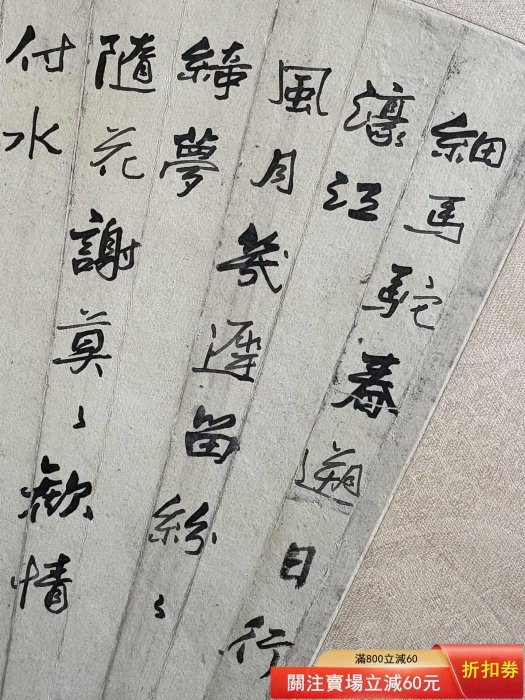 細馬駝春遡日行
濠江
風月幾遲留紛々
綺夢
隨花謝莫々歡情
付水
滿800立減60
關注賣場立減60元
折扣券